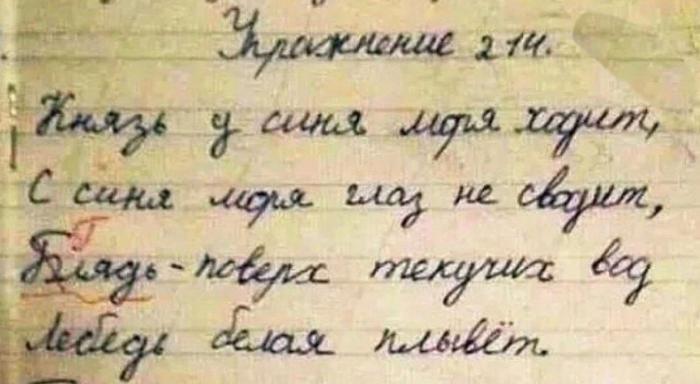 Упражнение 214.
Князь у синя моря ходит,
С синя моря глаз не сводит,
Г
Блядь - поверх текучих вод
Лебедь белая плывёт.